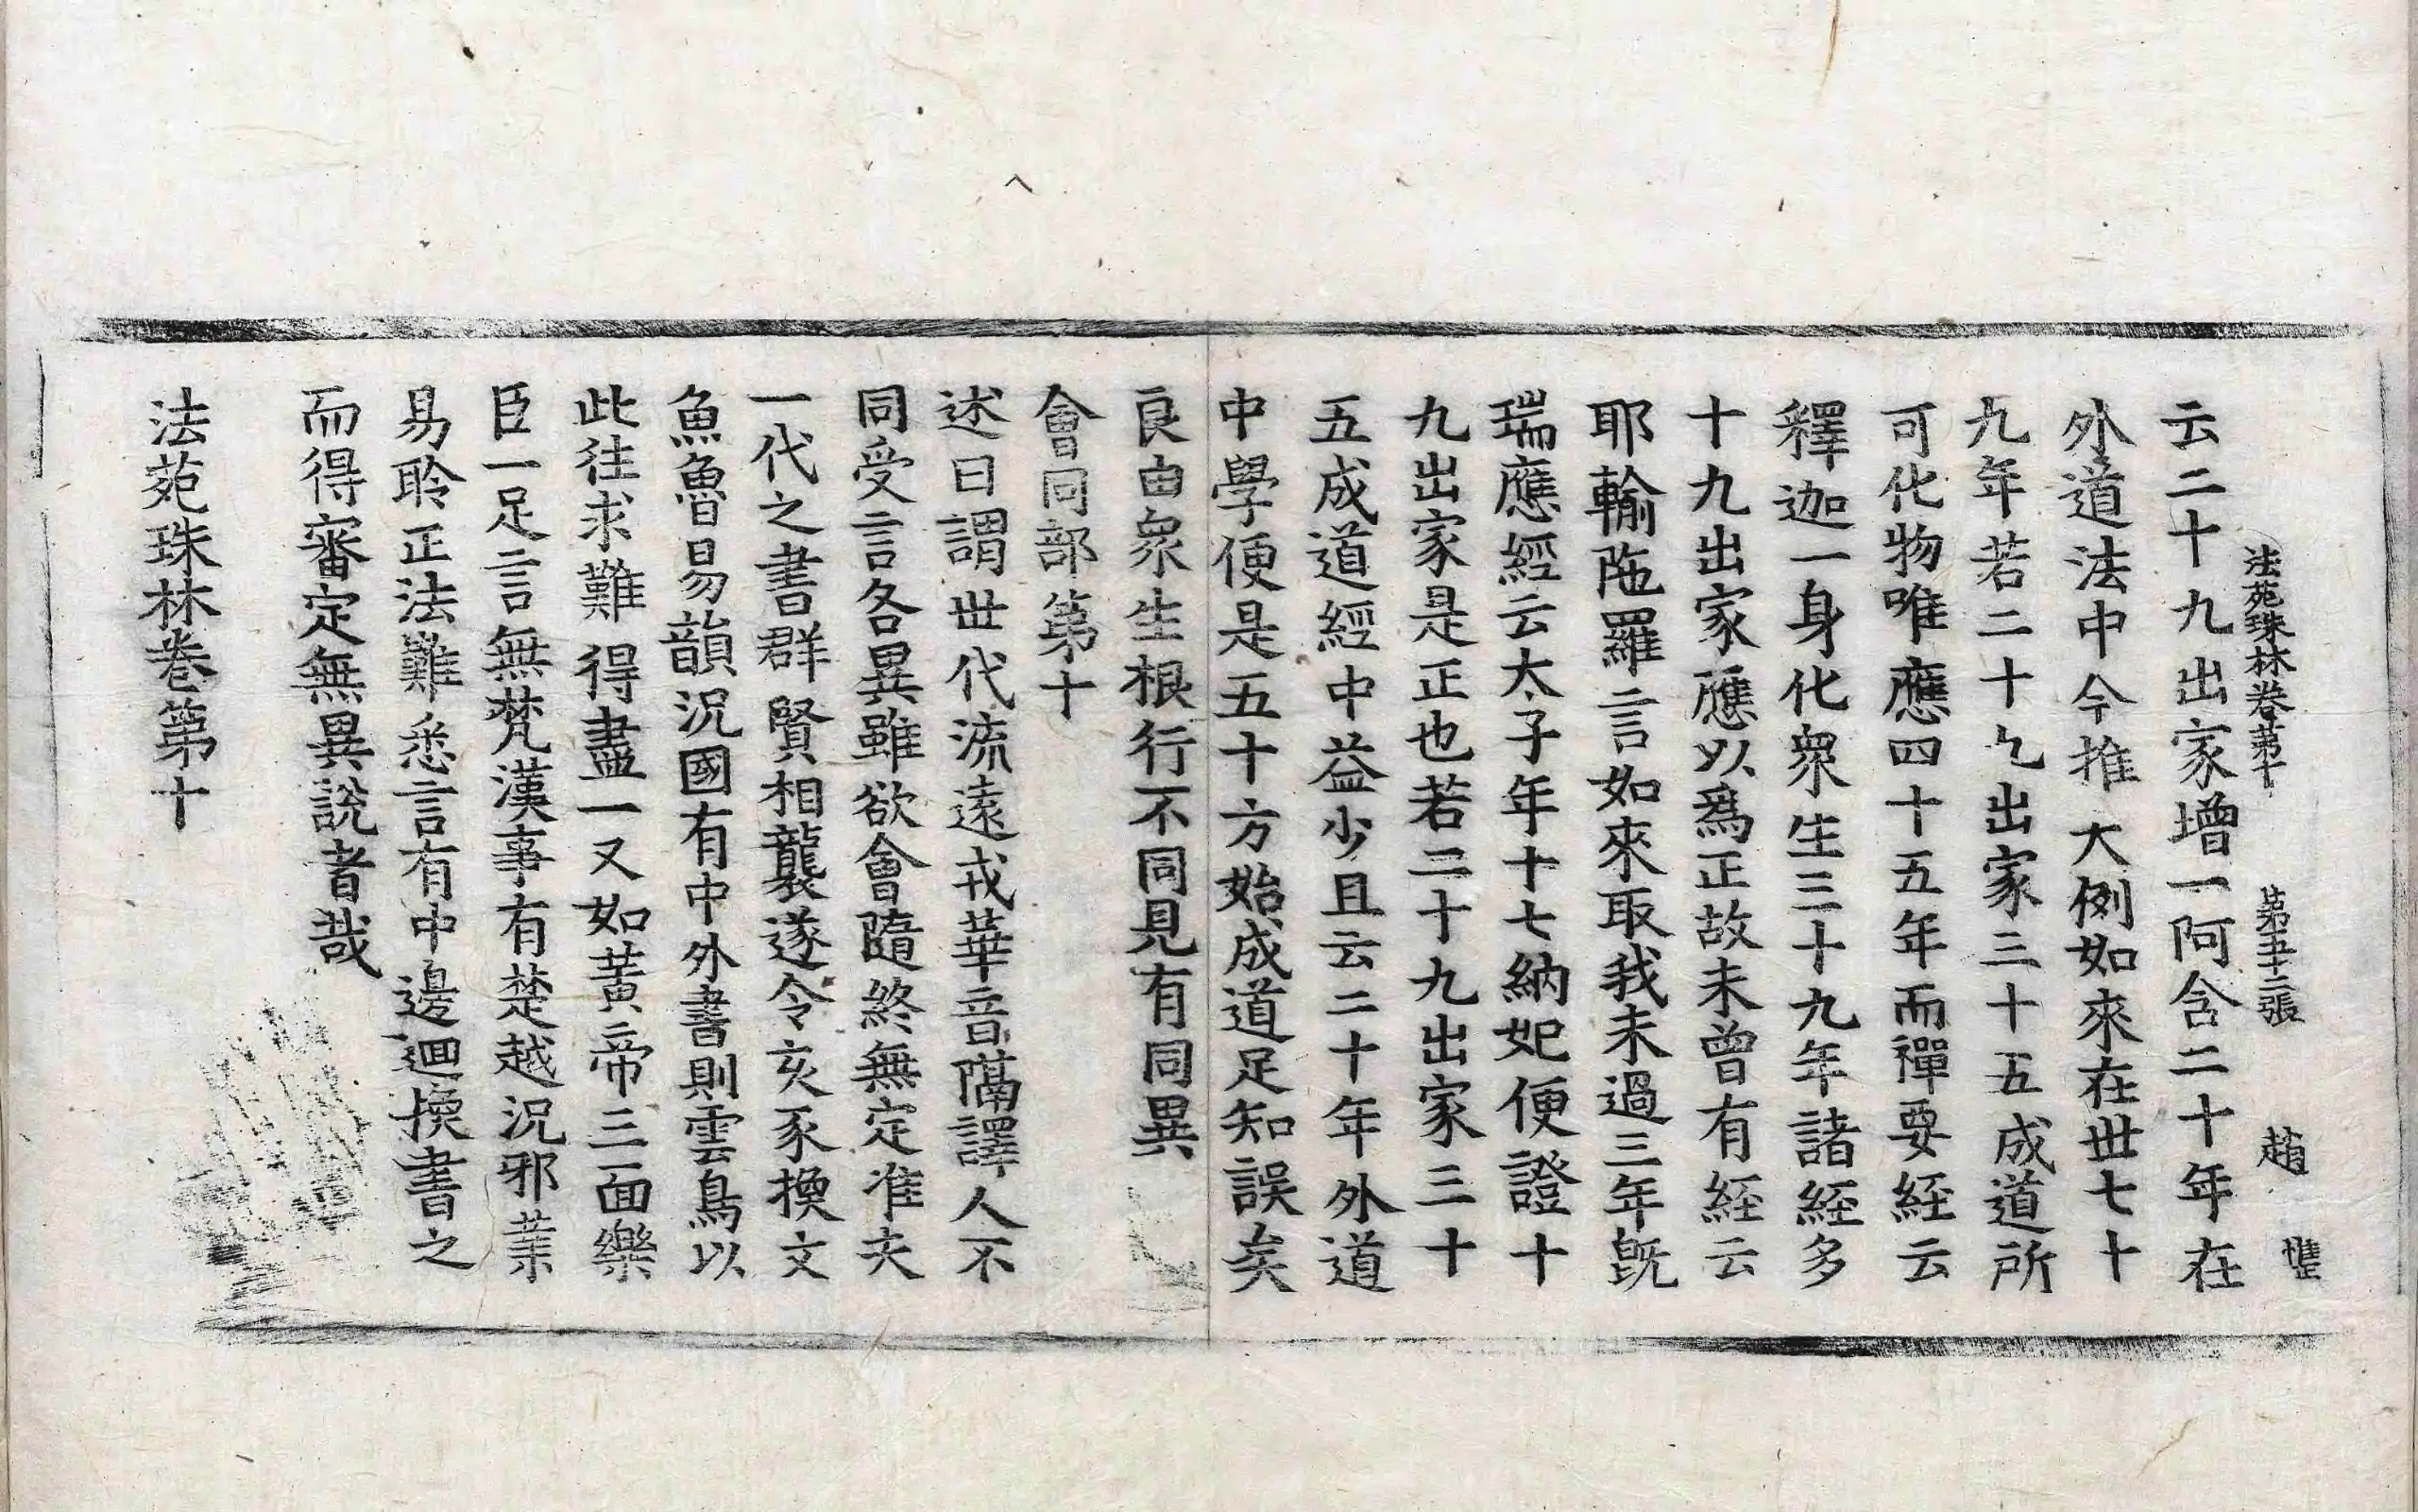 法苑珠林卷第十 第五十二張 趙 惟
云二十九出家增一阿含二十年在
外道法中今推大例如來在世七十
九年若二十九出家三十五成道所
可化物唯應四十五年而禪要經云
釋迦一身化衆生三十九年諸經多
十九出家應以爲正故未曾有經云
耶輸陁羅言如來取我未過三年旣
瑞應經云太子年十七納妃便證十
九出家是正也若二十九出家三十
五成道經中益少且云二十年外道
中學便是五十方始成道足知誤矣
良由衆生根行不同見有同異
會同部第十
述曰謂世代流遠戎華音隔譯人不
同受言各異雖欲會隨終無定准夫
一代之書群賢相襲遂令亥豕換文
魚魯易韻況國有中外書則雲鳥以
此往求難得盡一又如黃帝三面樂
臣一足言無梵漢事有楚越況邪業
易聆正法難悉言有中邊迴換書之
而得審定無異說者哉
法苑珠林卷第十